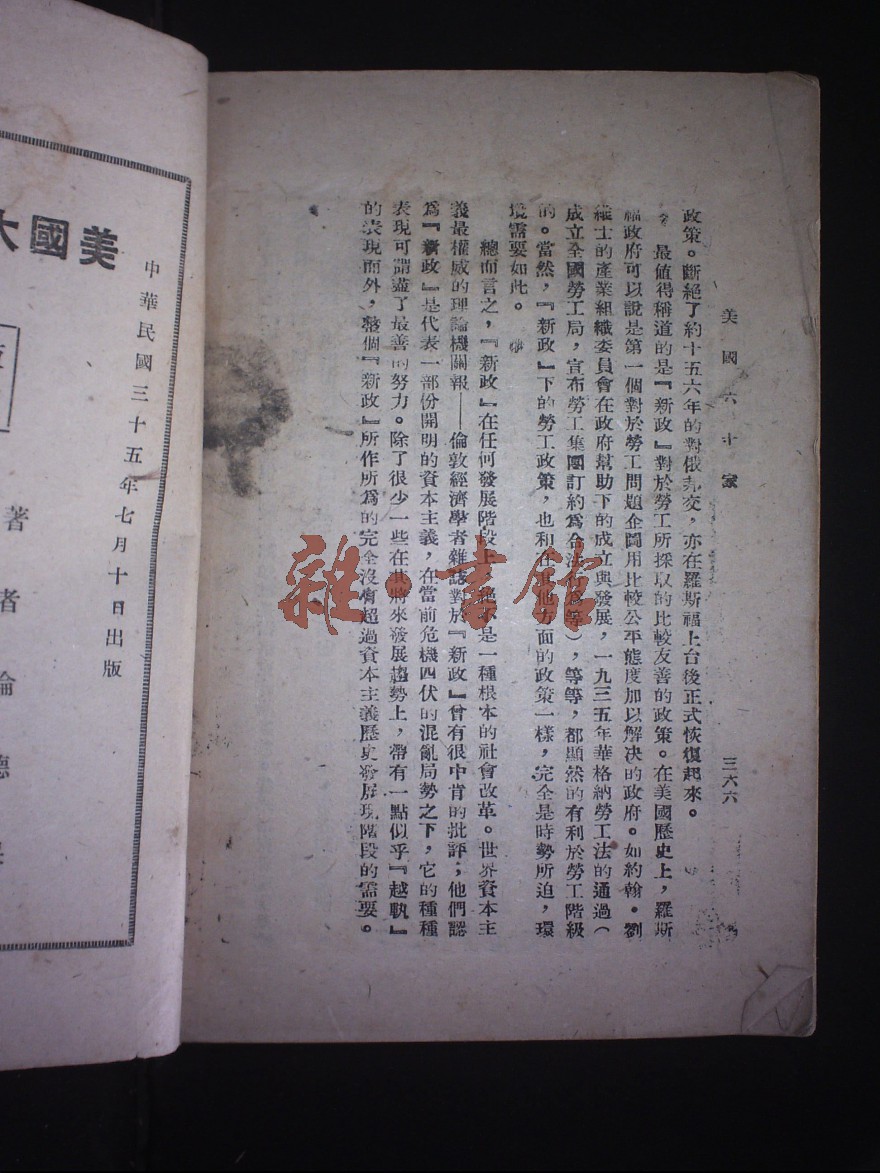 美國六十家
三六六
政策。斷絕了約十五六年的對俄邦交，亦在羅斯福上台後正式恢復起來。
最值得稱道的是『新政』對於勞工所採取的比較友善的政策。在美國歷史上，羅斯
福政府可以說是第一個對於勞工問題企圖用比較公平態度加以解决的政府。如約翰。劉
維士的產業組織委員會在政府幫助下的成立與發展，一九三五年華格納勞工法的通過（
成立全國勞工局，宣布勞工集團訂約爲合法行爲等），等等，都顯然的有利於勞工階級
的。當然，『新政』下的勞工政策，也和在其他方面的政策一樣，完全是時勢所迫，環
境需要如此。
總而言之，『新政』在任何發展階段上，絕不是一種根本的社會改革。世界資本主
義最權威的理論機關報——倫敦經濟學者雜誌對於『新政』曾有很中肯的批評；他們認
爲『新政』是代表一部份開明的資本主義，在當前危機四伏的混亂局勢之下，它的種種
表現可謂盡了最善的努力。除了很少一些在其將來發展趨勢上，帶有一點似乎『越軌』
的表現而外，整個『新政』所作所爲的完全沒有超過資本主義歷史發展現階段的需要。
中華民國三十五年七月十日出版
美國六
著
者
論
德
雜·書館